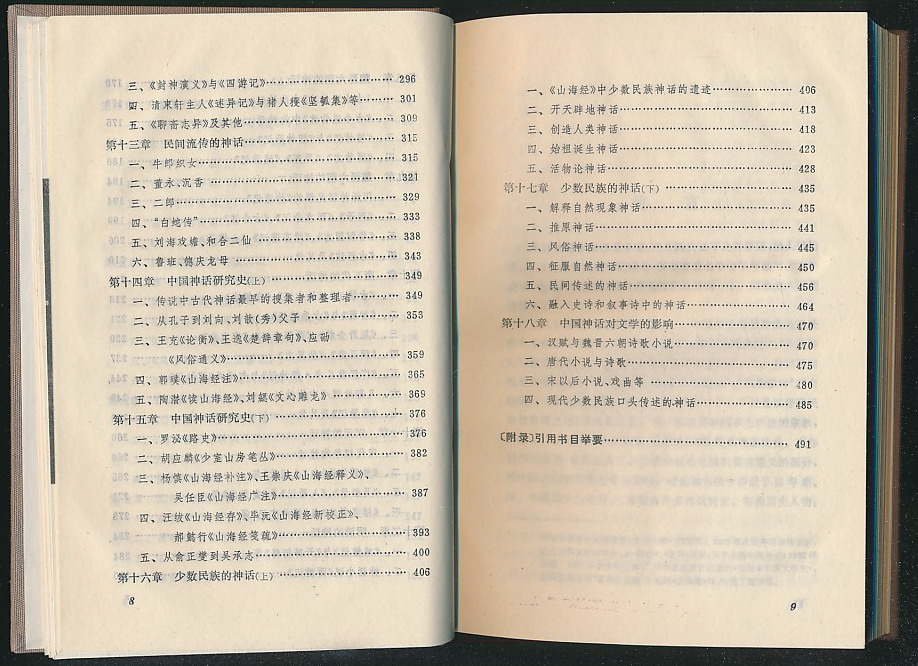 三、《封神演义》与《四游记》…… 296
四、清東轩主人《述异记》与褚人穫《坚瓠集》等…… 301
五、《聊斋志异》及其他…… 309
第十三章 民间流传的神话…… 315
一、牛郎织女…… 315
二、董永、沉香…… 321
三、二郎…… 329
四、“白蛇传”…… 333
五、刘海戏蟾、和合二仙…… 338
六、鲁班、德庆龙母…… 343
第十四章 中国神话研究史(上)…… 349
一、传说中古代神话最早的搜集者和整理者…… 349
二、从孔子到刘向、刘歆(秀)父子…… 353
三、王充《论衡》、王逸《楚辞章句》、应劭
《风俗通义》…… 359
四、郭璞《山海经注》…… 365
五、陶潜《读山海经》、刘勰《文心雕龙》…… 369
第十五章 中国神话研究史(下)…… 376
一、罗泌《路史》…… 376
二、胡应麟《少室山房笔丛》…… 382
三、杨慎《山海经补注》、王崇庆《山海经释义》、
吴任臣《山海经广注》…… 387
四、汪绂《山海经存》、毕沅《山海经新校正》、
郝懿行《山海经笺疏》…… 393
五、从俞正燮到吴承志…… 400
第十六章 少数民族的神话(上)…… 406
8
一、《山海经》中少数民族神话的遗迹…… 406
二、开天辟地神话…… 413
三、创造人类神话…… 418
四、始祖诞生神话…… 423
五、活物论神话…… 428
第十七章 少数民族的神话(下)…… 435
一、解释自然现象神话…… 435
二、推原神话…… 441
三、风俗神话…… 445
四、征服自然神话…… 450
五、民间传述的神话…… 456
六、融入史诗和叙事诗中的神话…… 464
第十八章 中国神话对文学的影响…… 470
一、汉赋与魏晋六朝诗歌小说…… 470
二、唐代小说与诗歌…… 475
三、宋以后小说、戏曲等…… 480
四、现代少数民族口头传述的神话…… 485
〔附录〕引用书目举要…… 491
9